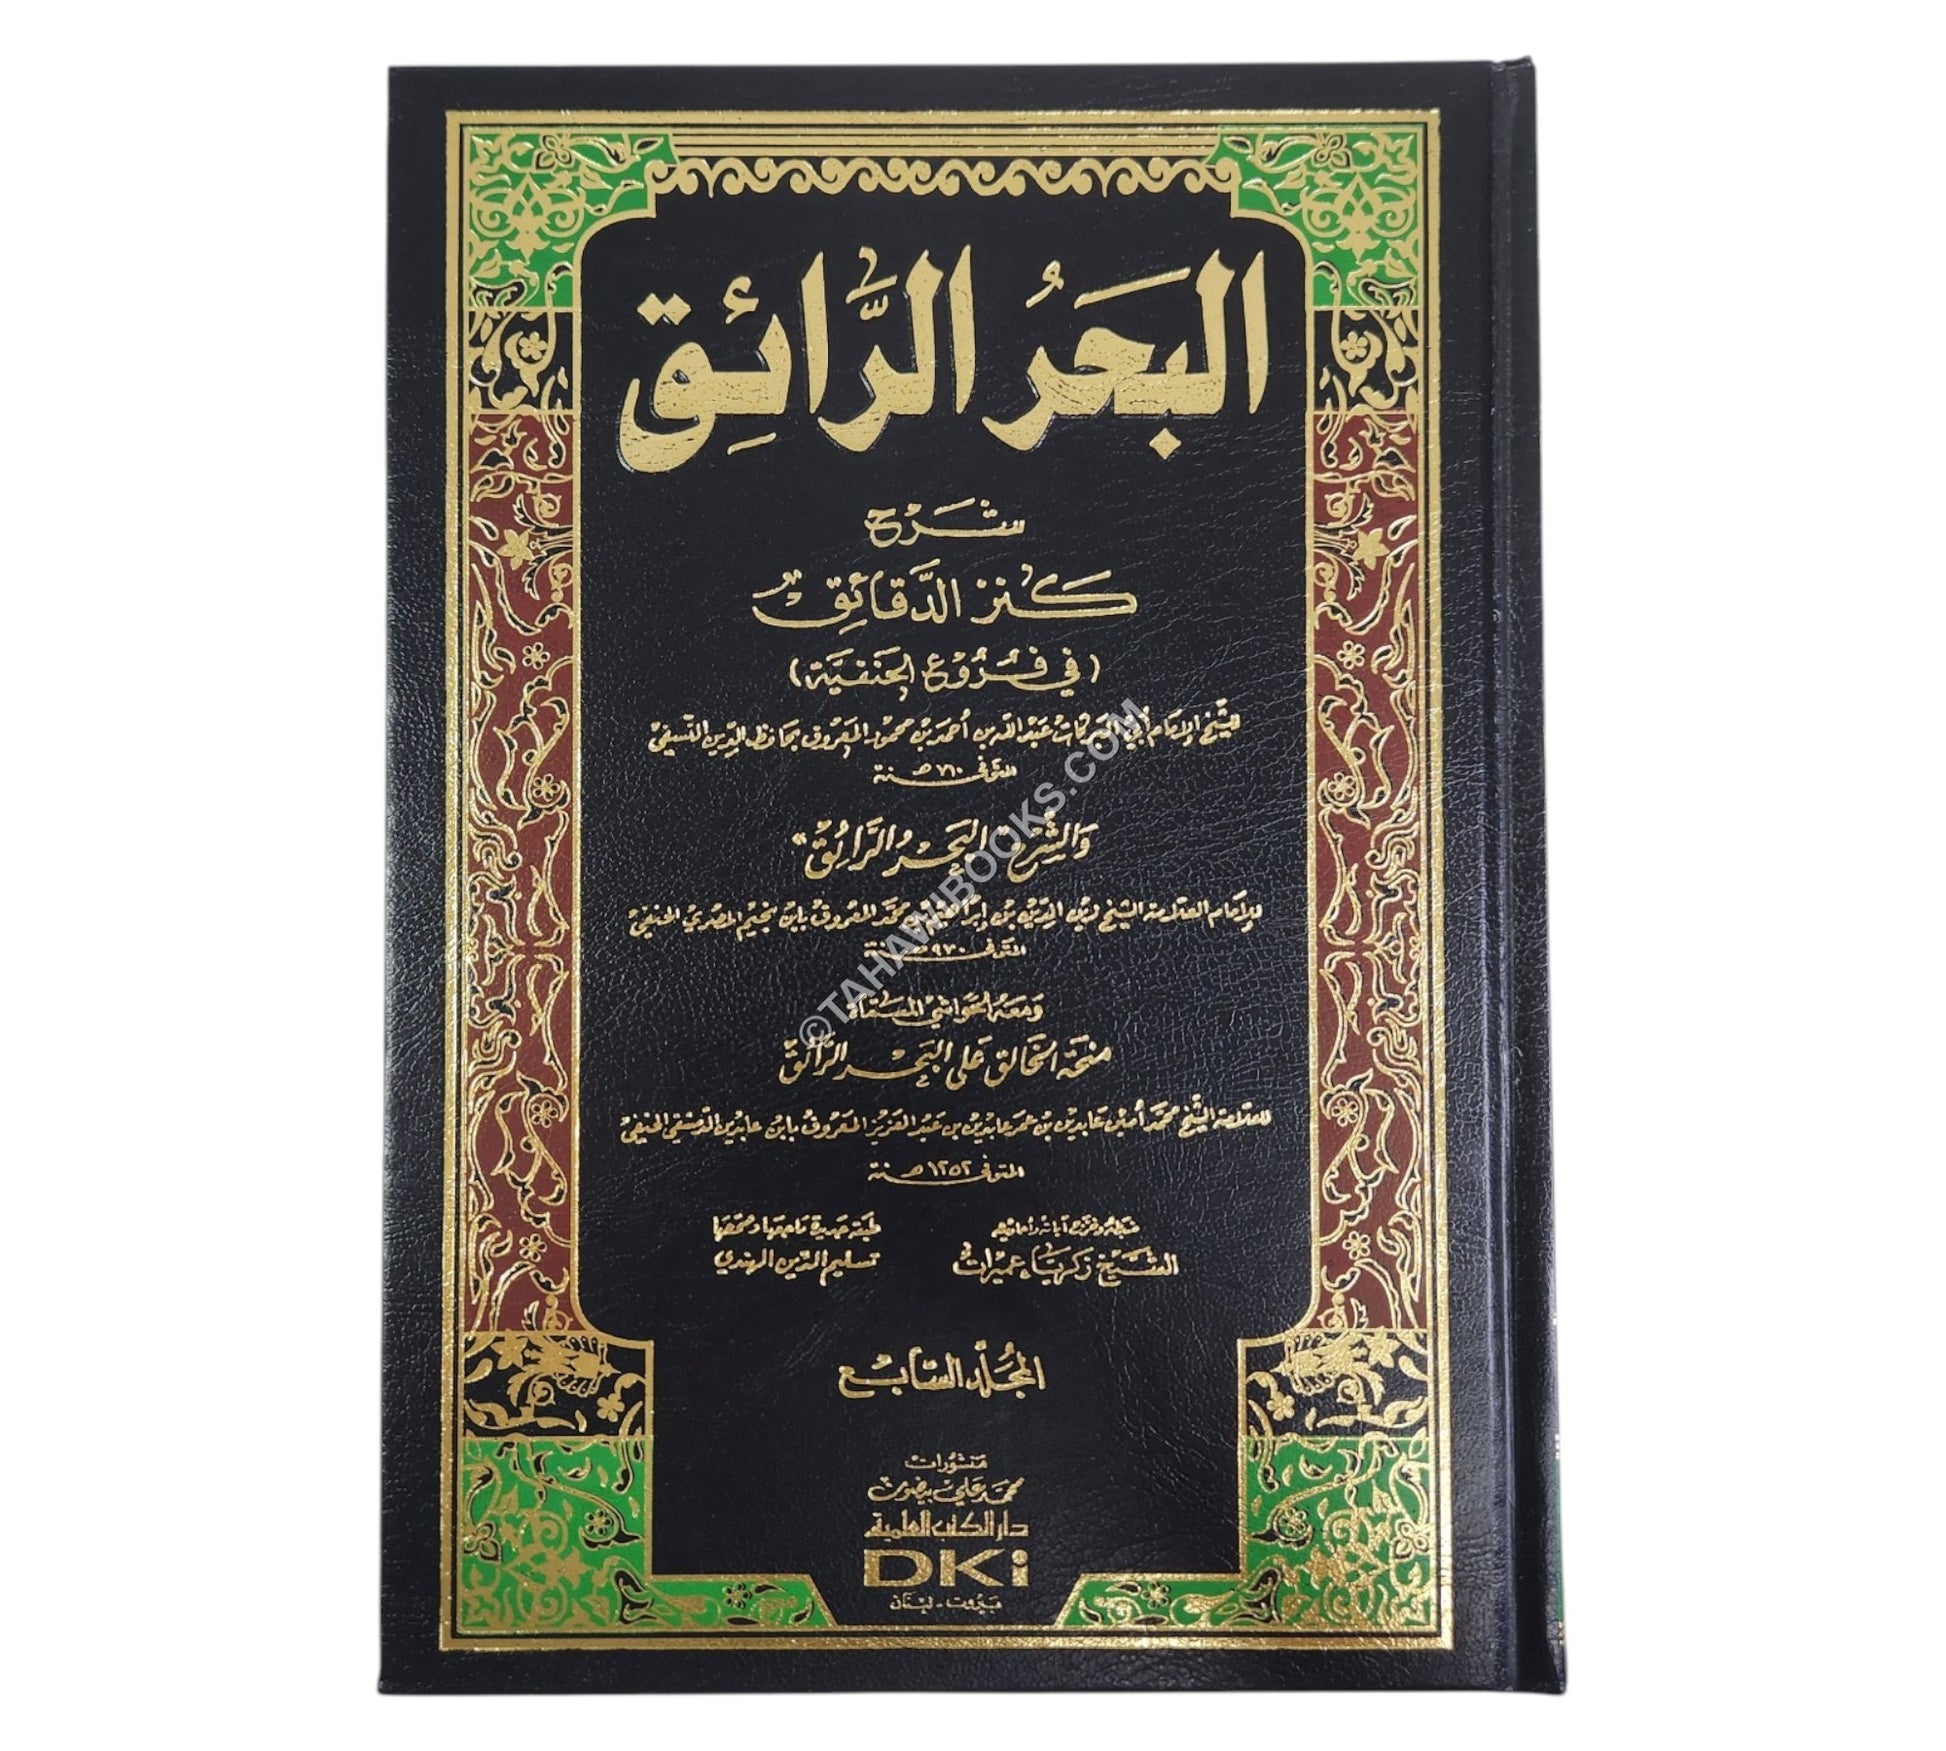 البَحَرُ الرَّائِق
شَرَح
كَنز الدَّقَائِق
(في فُرُوع الحَنَفيَّة)
للشيخ الإمام أبي البركات عبد الله بن أحمد بن محمود المعروف بحافظ الدين النسفي
المتوفى سنة ٧١٠ هـ
وَالشَّرح البَحر الرَّائق
للإمام العلامة الشيخ زين الدين بن إبراهيم بن محمد المعروف بابن نجيم المصري الحنفي
المتوفى سنة ٩٧٠ هـ
وَمَعَه الحَواشي المسَمَّاة
منحة الخالق عَلى البَحر الرَّائق
للعلامة الشيخ محمد أمين عابدين بن عمر عابدين بن عبد العزيز المعروف بابن عابدين الدمشقي الحنفي
المتوفى سنة ١٢٥٢ هـ
ضبطه وخرج آياته وأحاديثه
الشيخ زكريا عميرات
طبعة جديدة راجعها وصححها
تسليم الدين الهندي
المُجَلّد السَّابع
منشورات
محمد علي بيضون
دار الكتب العلمية
DKi
بيروت - لبنان
©TAHAWIBOOKS.COM